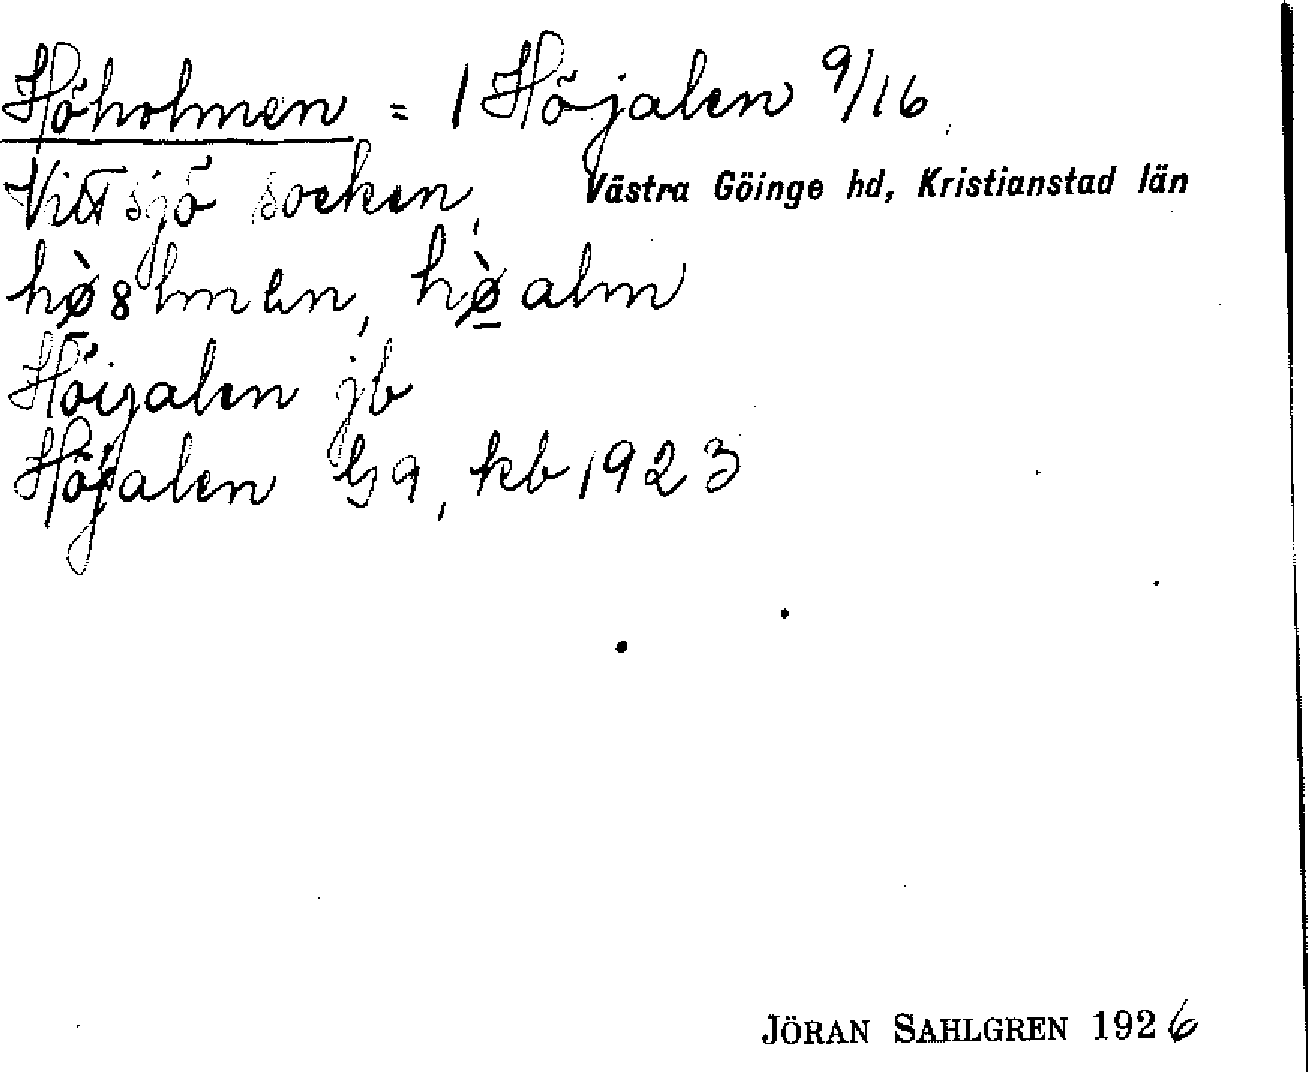 Höholmen = 1 Höjalen 9/16.
Vittsjö socken, Västra Göinge hd, Kristianstad län
hø̀8lmen, hø̠̀alm
Höijalen jb
Höjalen G9, kb 1923
JÖRAN SAHLGREN 1926